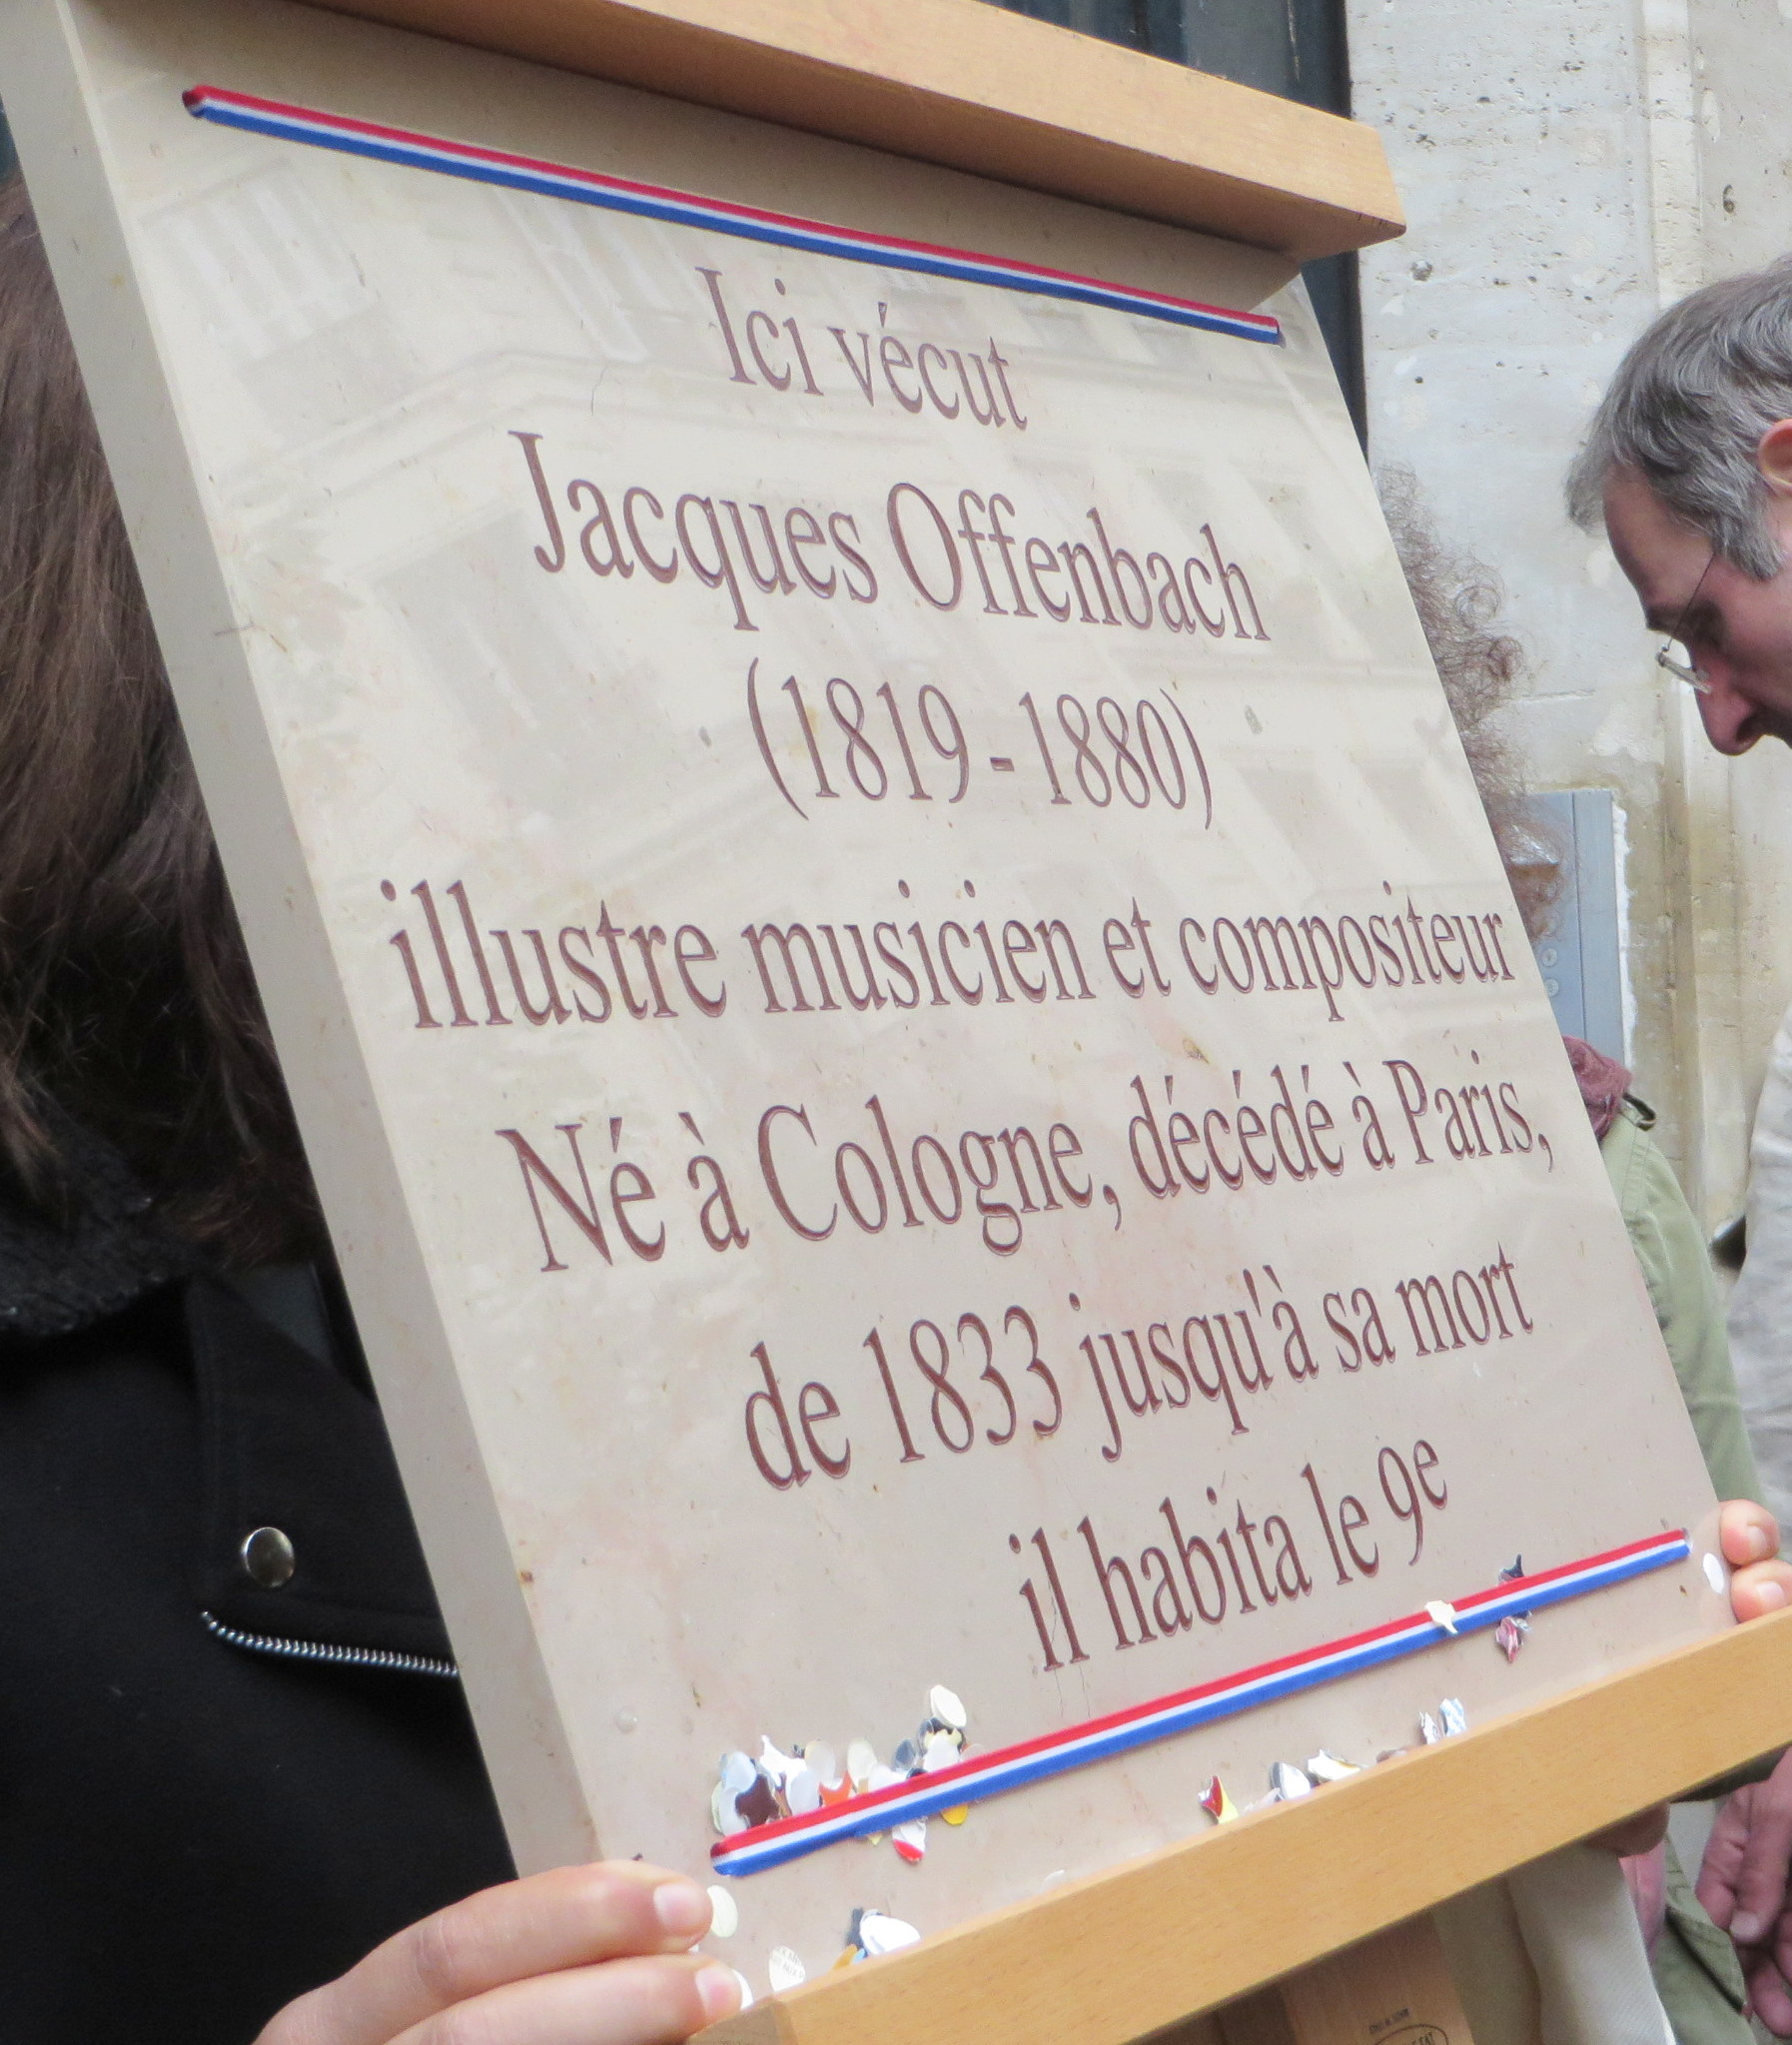 Ici vécut
Jacques Offenbach
(1819-1880)
illustre musicien et compositeur
Né à Cologne, décédé à Paris,
de 1833 jusqu'à sa mort
il habita le 9e